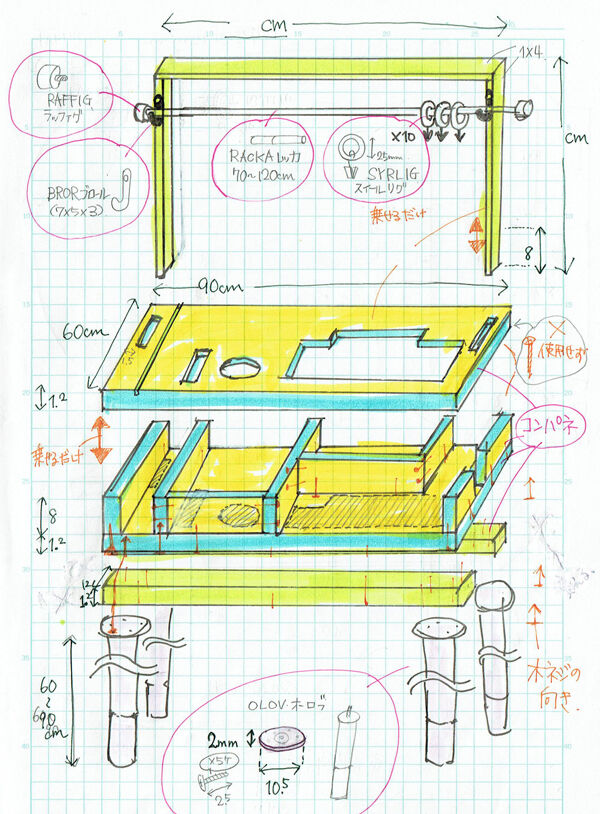 cm
1x4
RAFFIG
ラッフィグ
x10
cm
RACKA レッカ
70～120cm
25mm
SYRLIG
スィールリグ
BROR ブロール
(7x5x3)
乗せるだけ
8
90cm
60cm
×
使用せず
1.2
コンパネ
乗せるだけ
8
1.2
1.2
木ネジの
向き
60
～
90
cm
OLOV オーロブ
2mm
x5ケ
25
10.5